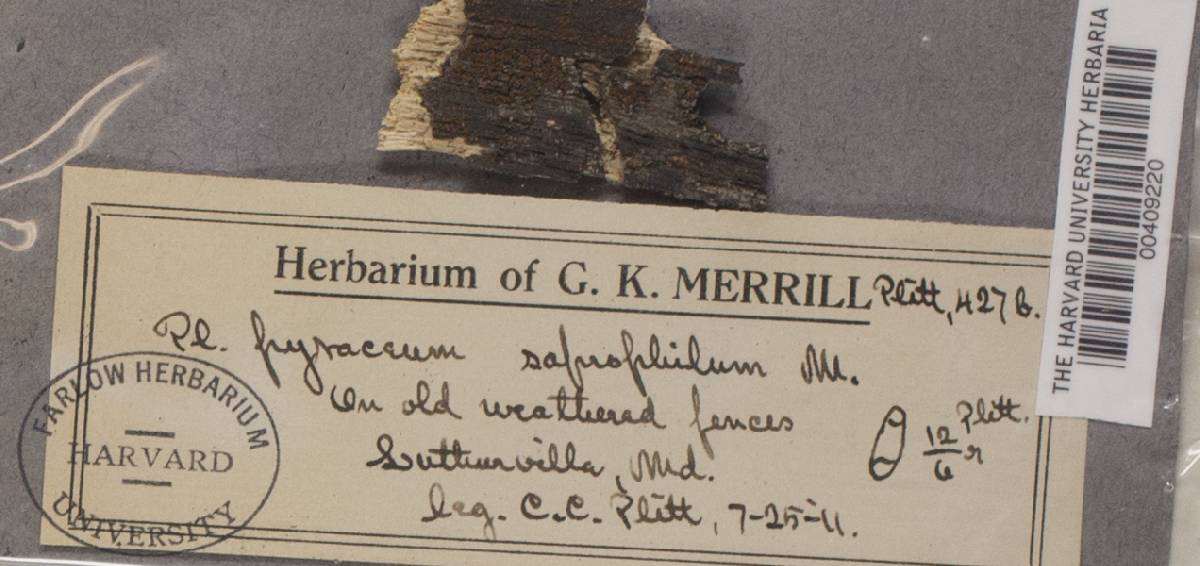 Herbarium of G. K. MERRILL Plitt, 427 b.
Pl. pyraceum saprophilum M.
On old weathered fences
Md.
leg. C.C. Plitt, 7-25-11.
12 Plitt.
6
FARLOW HERBARIUM
HARVARD
UNIVERSITY
THE HARVARD UNIVERSITY HERBARIA
00409220